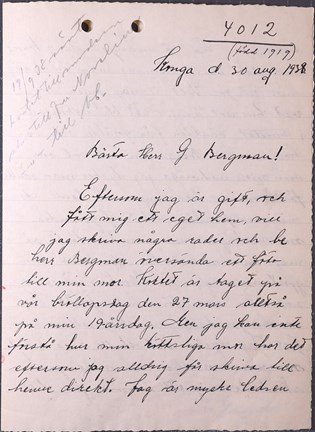 4012
(född 1919)
Konga d. 30 aug. 1938
Bästa Herr G Bergman!
Eftersom jag är gift, och
fått mig ett eget hem, vill
jag skriva några rader och be
herr Bergman översända ett foto
till min mor. Kortet är taget på
vår bröllopsdag den 27 mars alltså
på min 19årsdag. Men jag kan inte
förstå hur min köttsliga mor har det
eftersom jag alldrig får skriva till
henne direkt. Jag är mycke ledsen